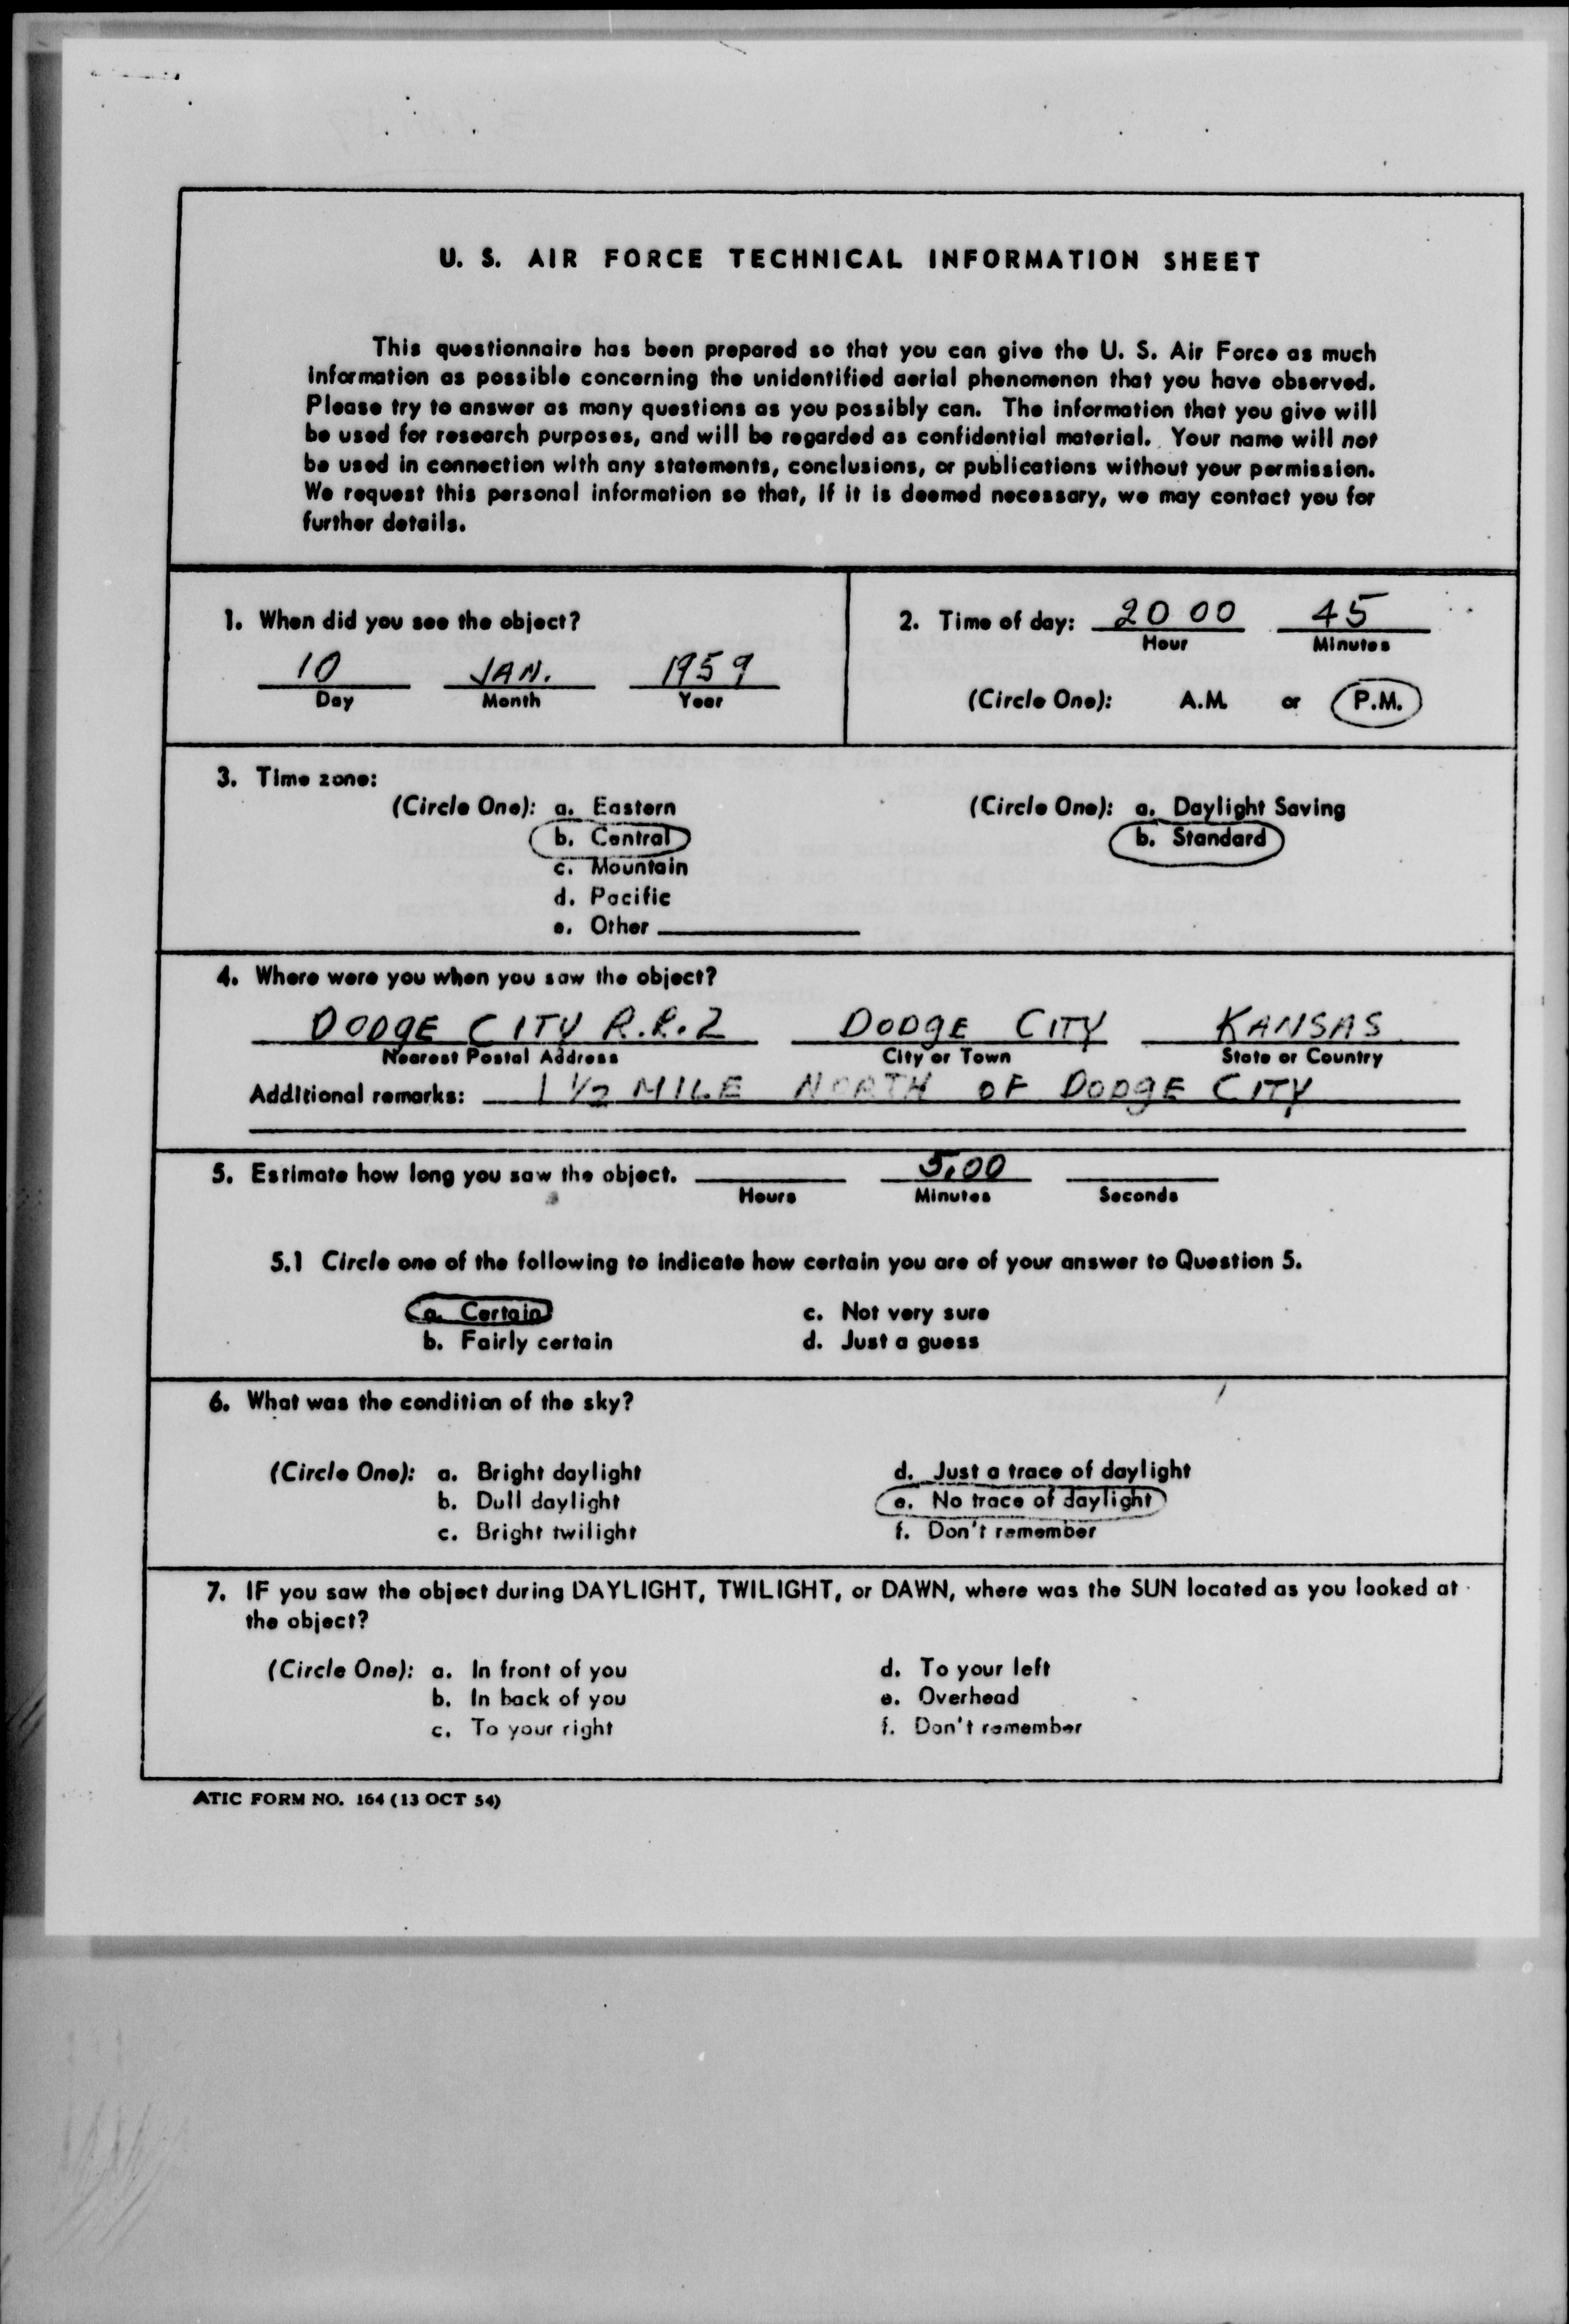 U. S. AIR FORCE TECHNICAL INFORMATION SHEET
This questionnaire has been prepared so that you can give the U. S. Air Force as much
information as possible concerning the unidentified aerial phenomenon that you have observed.
Please try to answer as many questions as you possibly can. The information that you give will
be used for research purposes, and will be regarded as confidential material. Your name will not
be used in connection with any statements, conclusions, or publications without your permission.
We request this personal information so that, if it is deemed necessary, we may contact you for
further details.
1. When did you see the object?
10 JAN. 1959
Day Month Year
2. Time of day: 20 00 45
Hour Minutes
(Circle One): A.M. or P.M.
3. Time zone:
(Circle One): a. Eastern
b. Central
c. Mountain
d. Pacific
e. Other
(Circle One): a. Daylight Saving
b. Standard
4. Where were you when you saw the object?
DODGE CITY R.R.2 DODGE CITY KANSAS
Nearest Postal Address City or Town State or Country
Additional remarks: 1 1/2 MILE NORTH OF DODGE CITY
5. Estimate how long you saw the object. 5,00
Hours Minutes Seconds
5.1 Circle one of the following to indicate how certain you are of your answer to Question 5.
a. Certain c. Not very sure
b. Fairly certain d. Just a guess
6. What was the condition of the sky?
(Circle One): a. Bright daylight d. Just a trace of daylight
b. Dull daylight e. No trace of daylight
c. Bright twilight f. Don't remember
7. IF you saw the object during DAYLIGHT, TWILIGHT, or DAWN, where was the SUN located as you looked at
the object?
(Circle One): a. In front of you d. To your left
b. In back of you e. Overhead
c. To your right f. Don't remember
ATIC FORM NO. 164 (13 OCT 54)